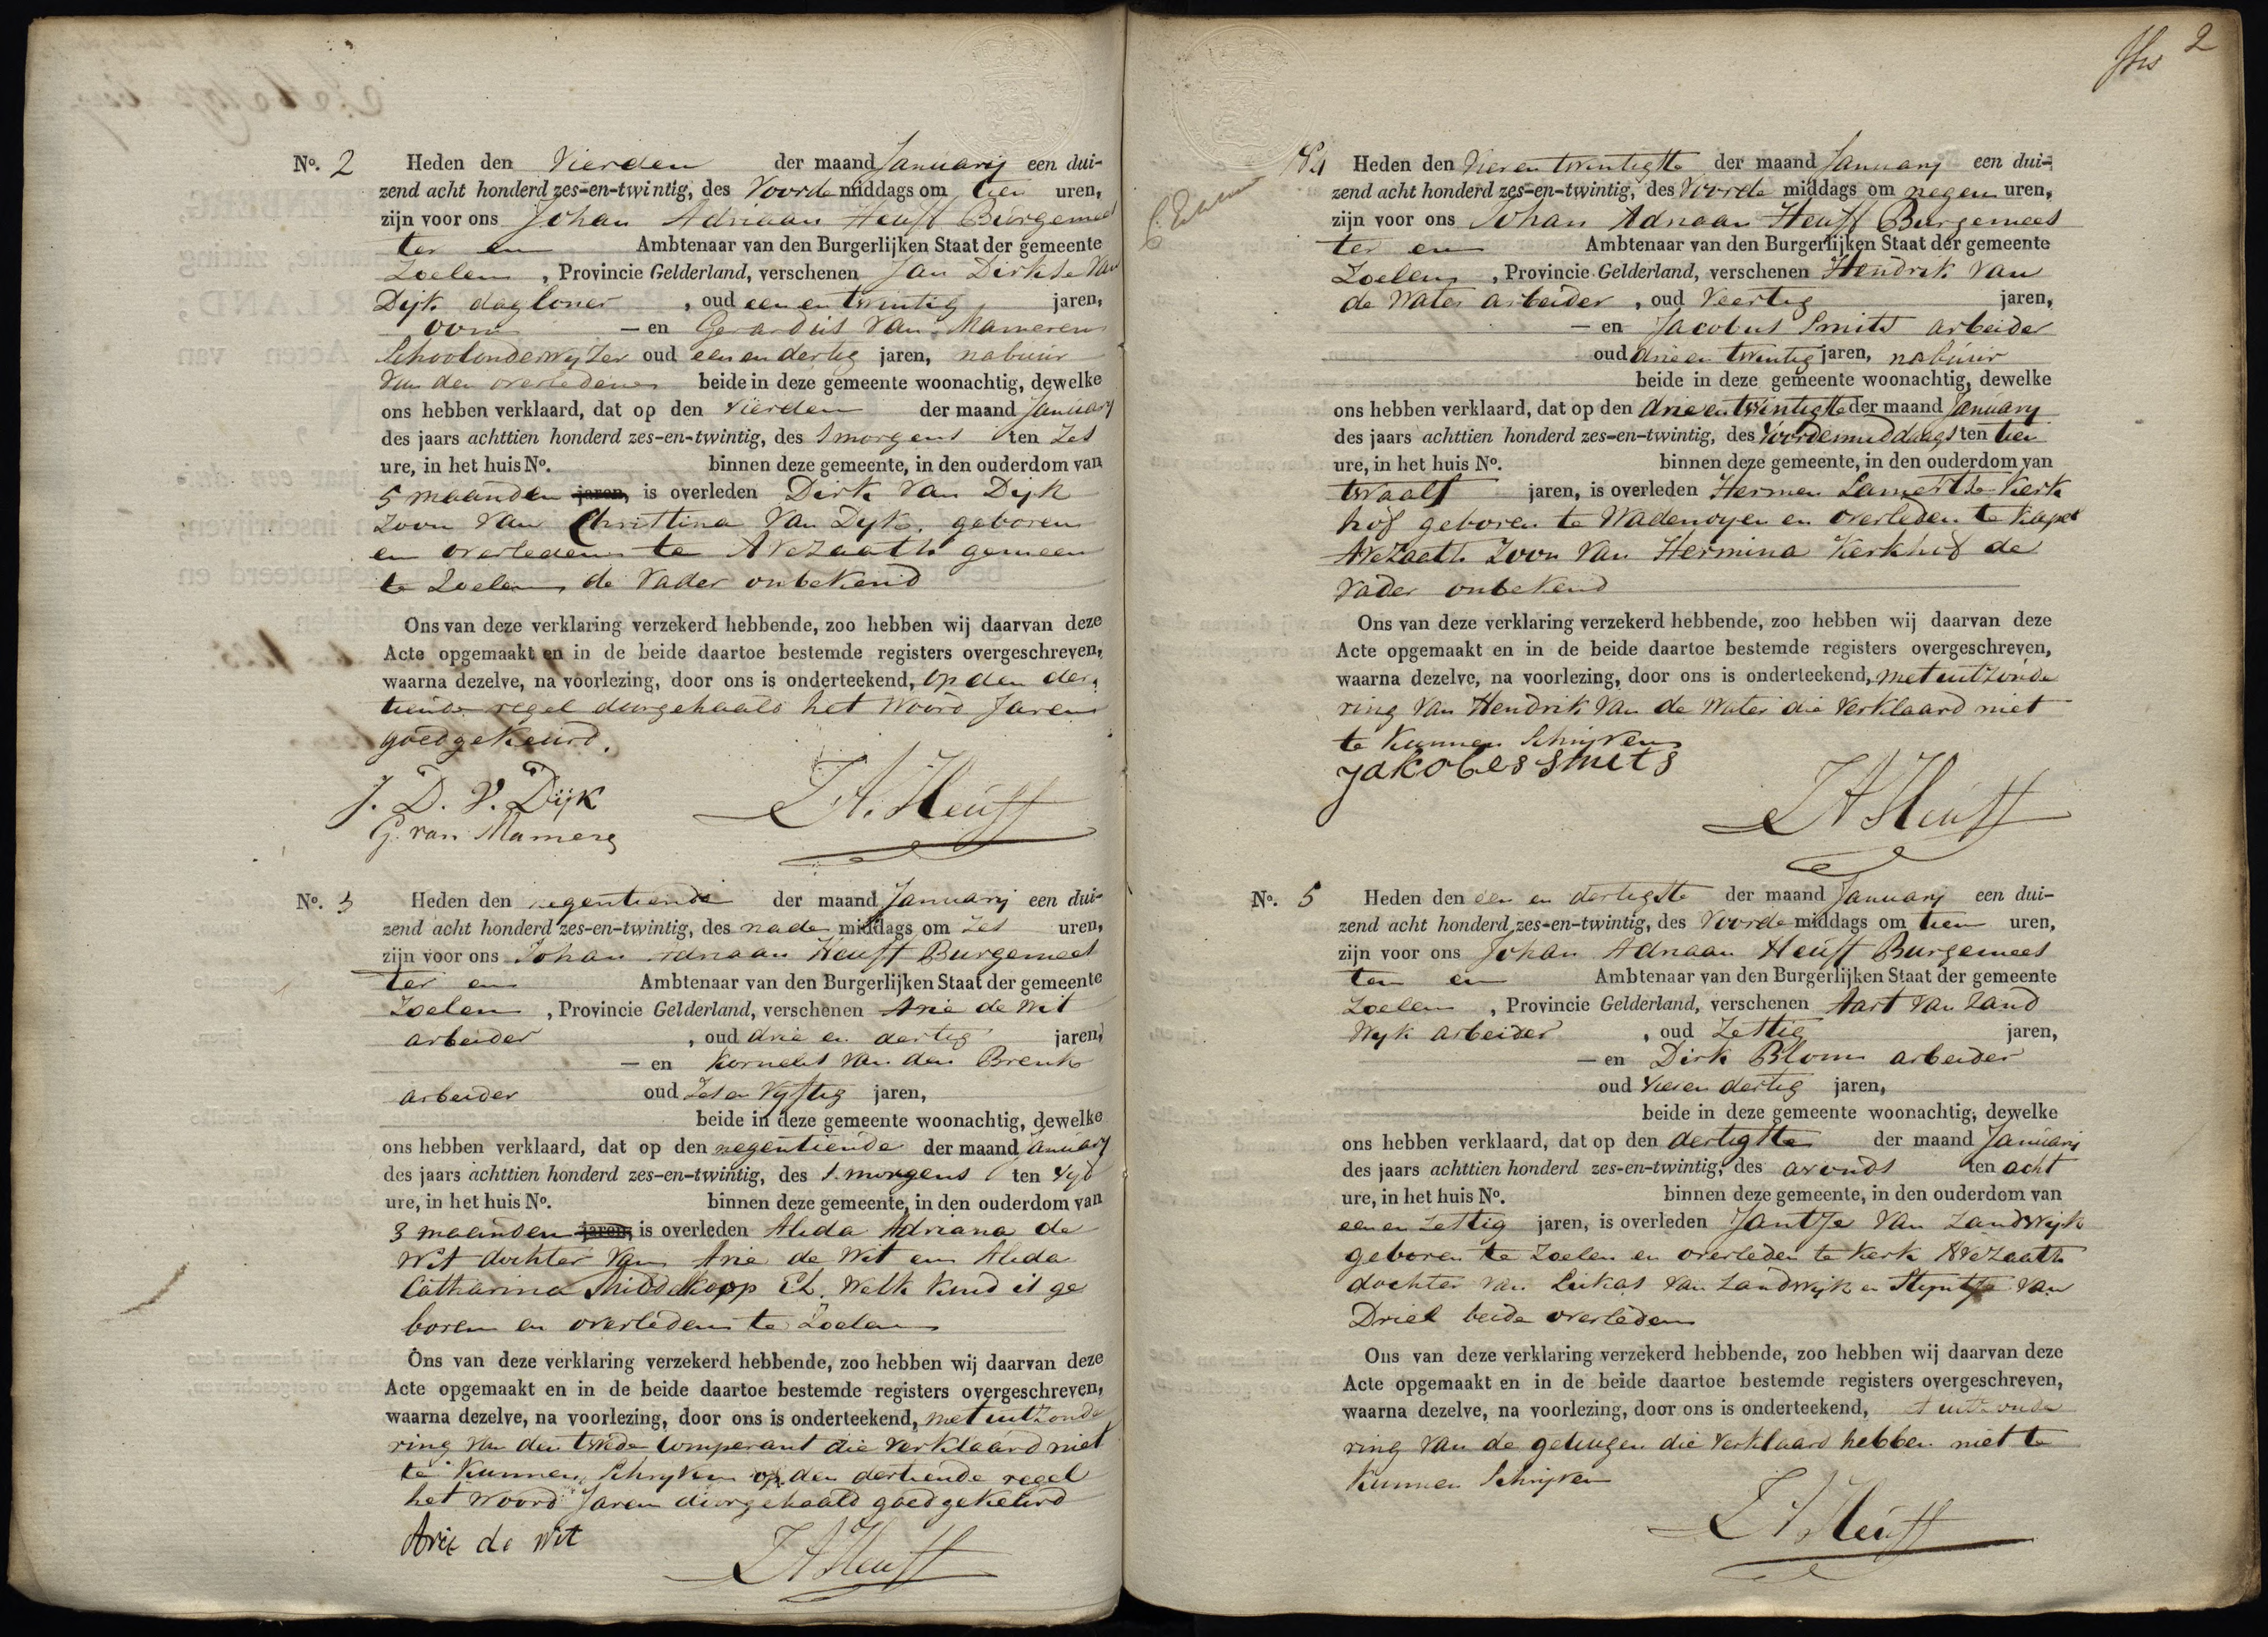 No. 2 Heden den Vierden der maand January een dui-
zend acht honderd zes-en-twintig, des Voorde middags om tien uren,
zijn voor ons Johan Adriaan Heuff Burgemees
ter en Ambtenaar van den Burgerlijken Staat der gemeente
Zoelen, Provincie Gelderland, verschenen Jan Dirkse Van
Dijk dagloner, oud een en twintig jaren,
oom — en Gerardus Van Mameren
Schoolonderwyzer oud een en dertig jaren, nabuur
Van den overledenen beide in deze gemeente woonachtig, dewelke
ons hebben verklaard, dat op den vierden der maand January
des jaars achttien honderd zes-en-twintig, des Smorgens ten Zes
ure, in het huis No. binnen deze gemeente, in den ouderdom van
5 maanden jaren, is overleden Dirk Van Dijk
Zoon Van Christina Van Dyk, geboren
en overleden te Avezaath gemeen
te Zoelen, de Vader onbekend
Ons van deze verklaring verzekerd hebbende, zoo hebben wij daarvan deze
Acte opgemaakt en in de beide daartoe bestemde registers overgeschreven,
waarna dezelve, na voorlezing, door ons is onderteekend, op den der,
tiende regel doorgehaald het Woord Jaren
goedgekeurd.
J. D. V. Dijk
JA. Heuff
G. van Mameren
No. 3 Heden den negentiende der maand January een dui-
zend acht honderd zes-en-twintig, des nade middags om Zes uren,
zijn voor ons Johan Adriaan Heuff Burgemees
ter en Ambtenaar van den Burgerlijken Staat der gemeente
Zoelen, Provincie Gelderland, verschenen Arie de Wit
arbeider, oud drie en dertig jaren,
— en Kornelis Van den Brenk
arbeider oud Zes en Vyftig jaren,
beide in deze gemeente woonachtig, dewelke
ons hebben verklaard, dat op den negentiende der maand January
des jaars achttien honderd zes-en-twintig, des S. morgens ten Vyf
ure, in het huis No. binnen deze gemeente, in den ouderdom van
3 maanden jaren, is overleden Alida Adriana de
Wit dochter Van Arie de Wit en Alida
Catharina El. Welk kind is ge
boren en overleden te Zoelen
Ons van deze verklaring verzekerd hebbende, zoo hebben wij daarvan deze
Acte opgemaakt en in de beide daartoe bestemde registers overgeschreven,
waarna dezelve, na voorlezing, door ons is onderteekend, met uitzonde
ring Van den twede Comperant die Verklaard niet
te Kunnen Schryven op den dertiende regel
het Woord Jaren doorgehaald goedgekeurd
Arie de Wit
JA Heuff
2
No 4 Heden den Vier en twintigste der maand January een dui-
zend acht honderd zes-en-twintig, des Voorde middags om negen uren,
zijn voor ons Johan Adriaan Heuff Burgemees
ter en Ambtenaar van den Burgerlijken Staat der gemeente
Zoelen, Provincie Gelderland, verschenen Hendrik Van
de Water arbeider, oud Veertig jaren,
— en Jacobus Smits arbeider
oud drie en twintig jaren, nabuur
beide in deze gemeente woonachtig, dewelke
ons hebben verklaard, dat op den drie en twintigste der maand January
des jaars achttien honderd zes-en-twintig, des Voordemiddags ten tien
ure, in het huis No. binnen deze gemeente, in den ouderdom van
twaalf jaren, is overleden Hermen Kerk
hof geboren te Wadenoyen en overleden te Kapel
Avezaath Zoon Van Hermina Kerkhof de
Vader onbekend
Ons van deze verklaring verzekerd hebbende, zoo hebben wij daarvan deze
Acte opgemaakt en in de beide daartoe bestemde registers overgeschreven,
waarna dezelve, na voorlezing, door ons is onderteekend, met uitzonde
ring Van Hendrik Van de Water die Verklaard niet
te Kunnen Schryven
Jakobes smets
JA Heuff
No. 5 Heden den een en dertigste der maand January een dui-
zend acht honderd zes-en-twintig, des Voorde middags om tien uren,
zijn voor ons Johan Adriaan Heuff Burgemees
ter en Ambtenaar van den Burgerlijken Staat der gemeente
Zoelen, Provincie Gelderland, verschenen Aart Van Zand
Wyk arbeider, oud Zestig jaren,
— en Dirk Blom arbeider
oud Vier en dertig jaren,
beide in deze gemeente woonachtig, dewelke
ons hebben verklaard, dat op den dertigste der maand January
des jaars achttien honderd zes-en-twintig, des avonds ten acht
ure, in het huis No. binnen deze gemeente, in den ouderdom van
een en Zestig jaren, is overleden Jantje Van Zandwyk
geboren te Zoelen en overleden te Kerk Avezaath
dochter Van Lukas Van Zandwyk en Styntje Van
Driel beide overleden
Ons van deze verklaring verzekerd hebbende, zoo hebben wij daarvan deze
Acte opgemaakt en in de beide daartoe bestemde registers overgeschreven,
waarna dezelve, na voorlezing, door ons is onderteekend, met uitzonde
ring Van de getuigen die Verklaard hebben niet te
Kunnen Schryven
JA Heuff